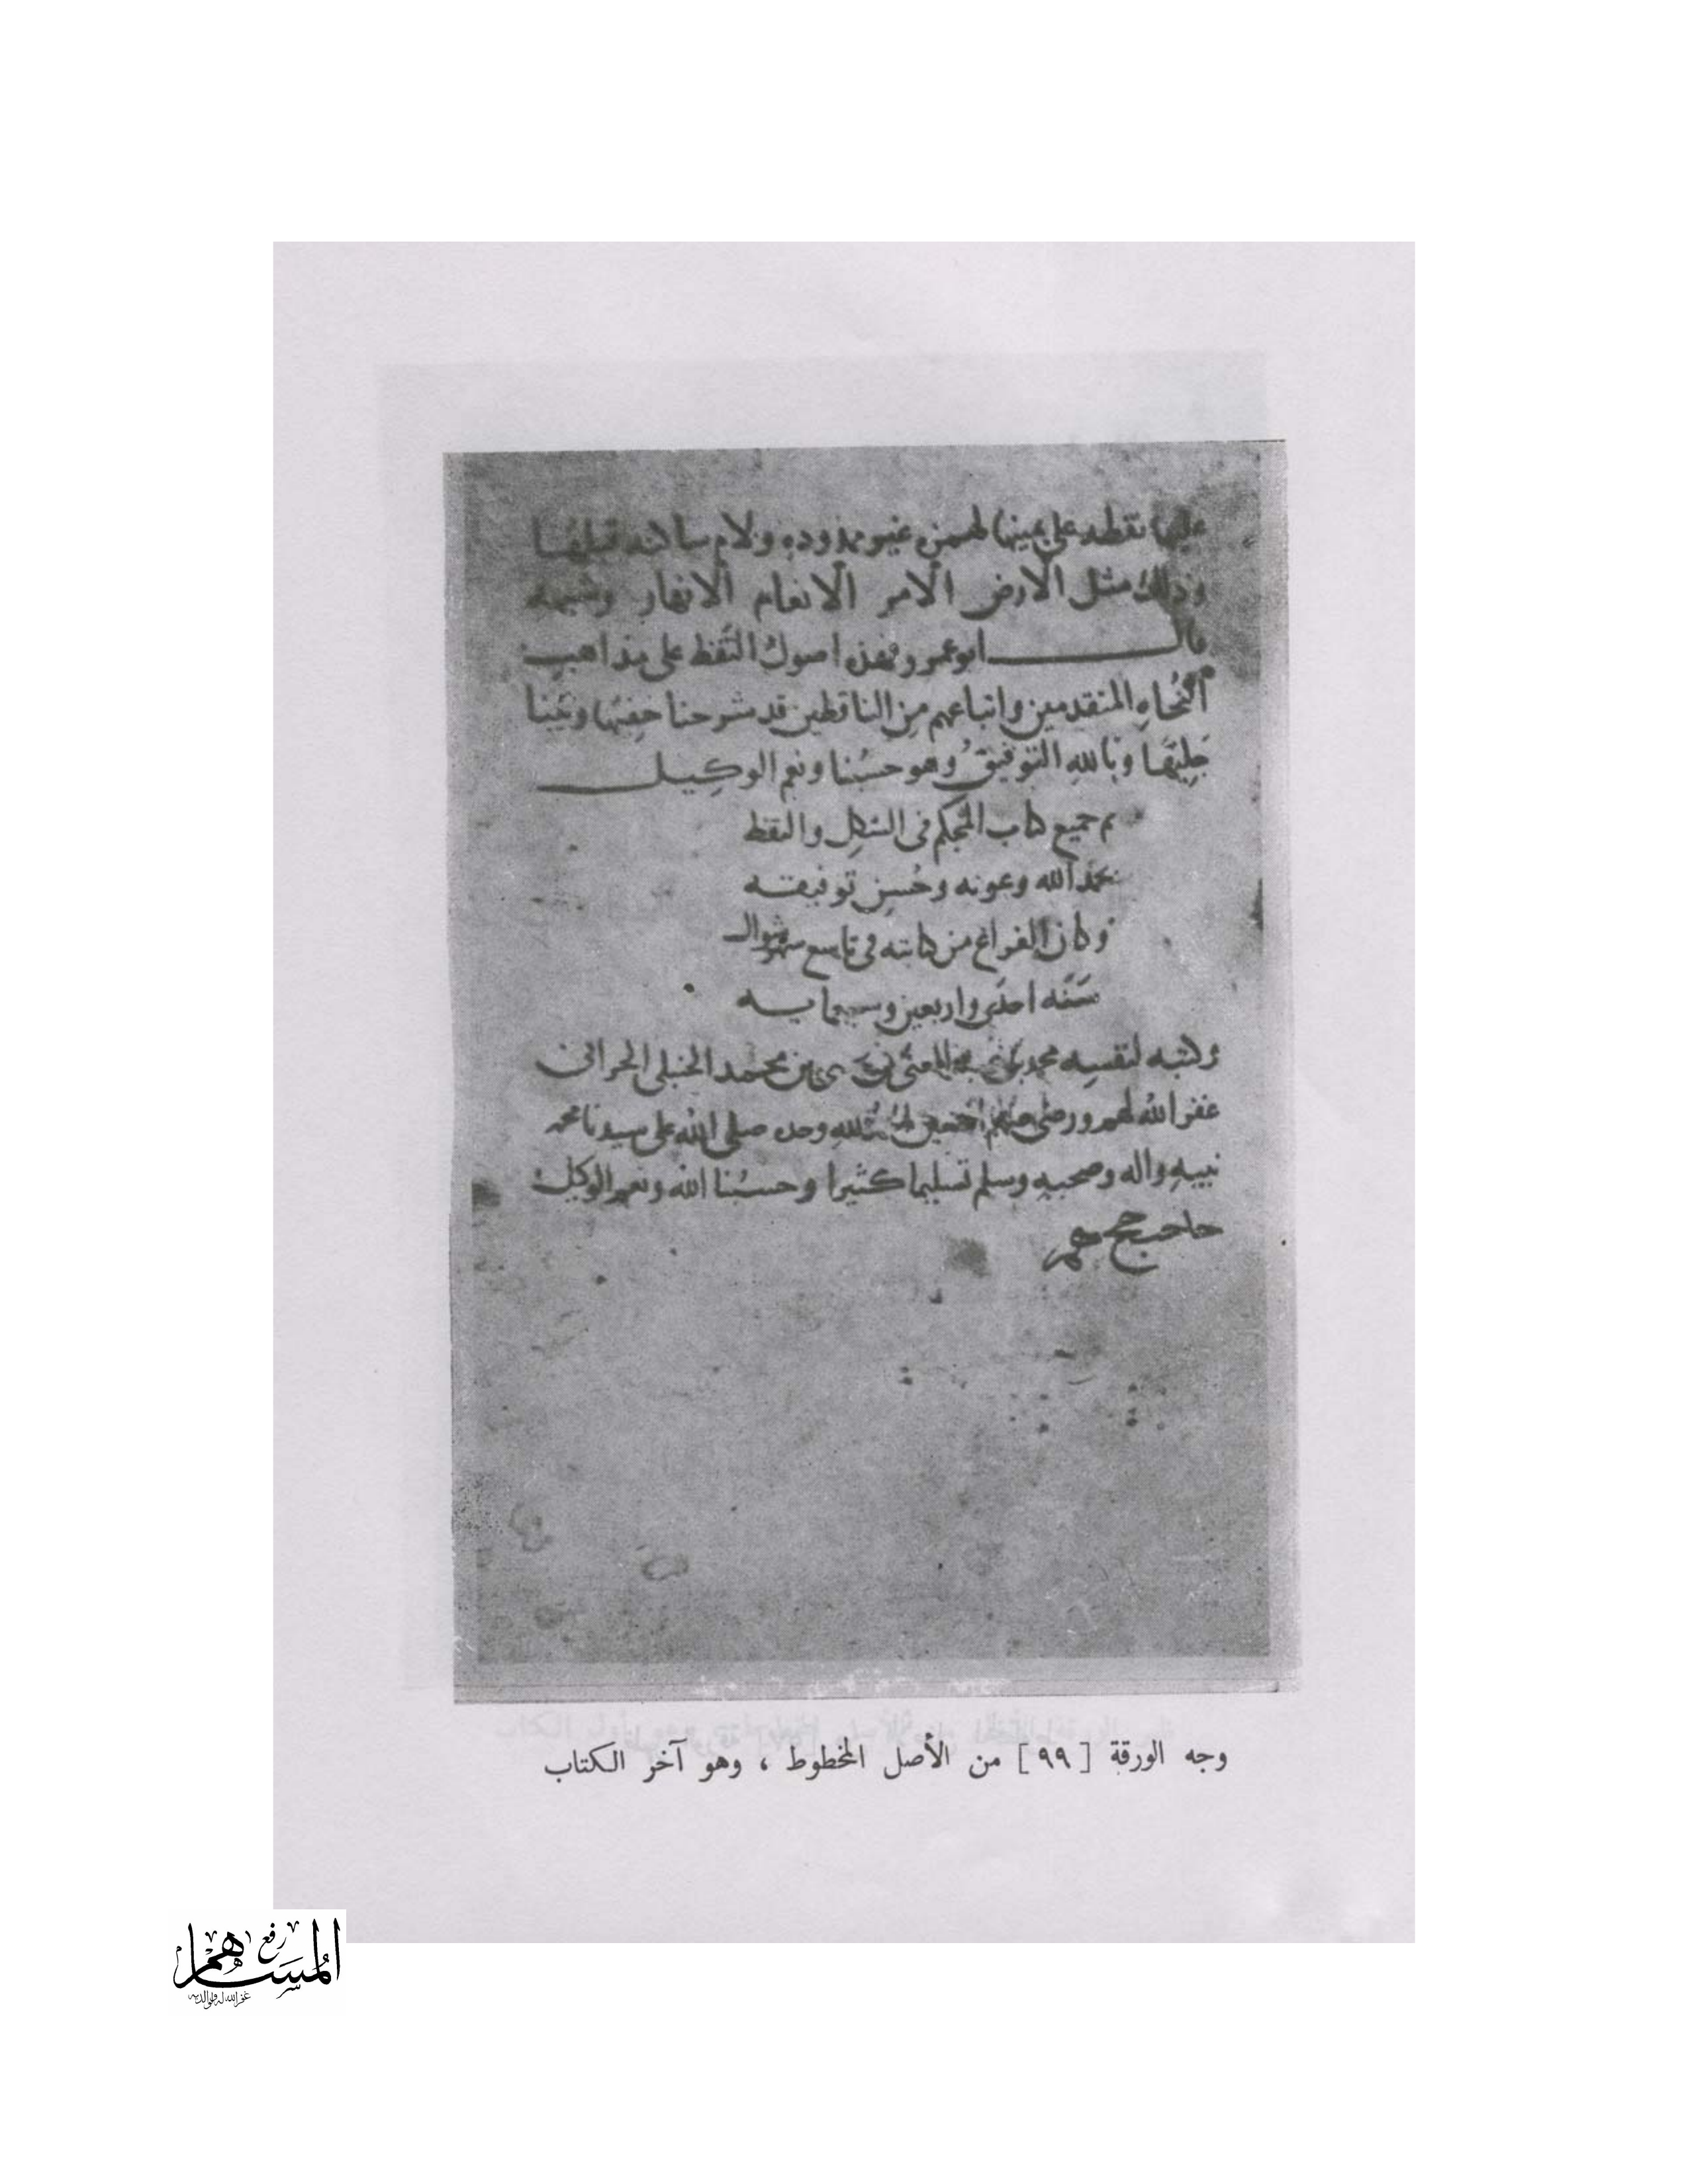 عليها نقطه على يمينها لهمزه غير ممدوده ولام ساكنه قبلها
وذلك مثل الارض الامر الانعام الانهار وشبهه
قال ابو عمرو فهذه اصول النقط على مذاهب
النُحاهِ المتقدمين واتباعهم مِن الناقطين قد شرحنا خفيّها وبيّنا
جَلِيّهَا وبالله التوفيقُ وهو حسْبُنا ونعم الوكِيل
تم جميع كتاب المُحكم فى الشكلِ والنقط
بحمد الله وعونه وحُسن توفيقه
وكان الفراغ من كتابته فى تاسع شهر شوال
سَنَه احدَى واربعين وسبعمايه
وكتبه لنفسِه محمد بن محمد الحنبلى الحرانى
غفر الله لهم ورضى عنهم اجمعين لله وحده صلى الله على سيدنا محمد
نبيهِ واله وصحبهِ وسلم تسليما كثيرا وحسبُنا الله ونعم الوكيل
وجه الورقة [ ٩٩ ] من الأصل المخطوط ، وهو آخر الكتاب
رفع
المُسَاهم
غفر الله له ولوالديه